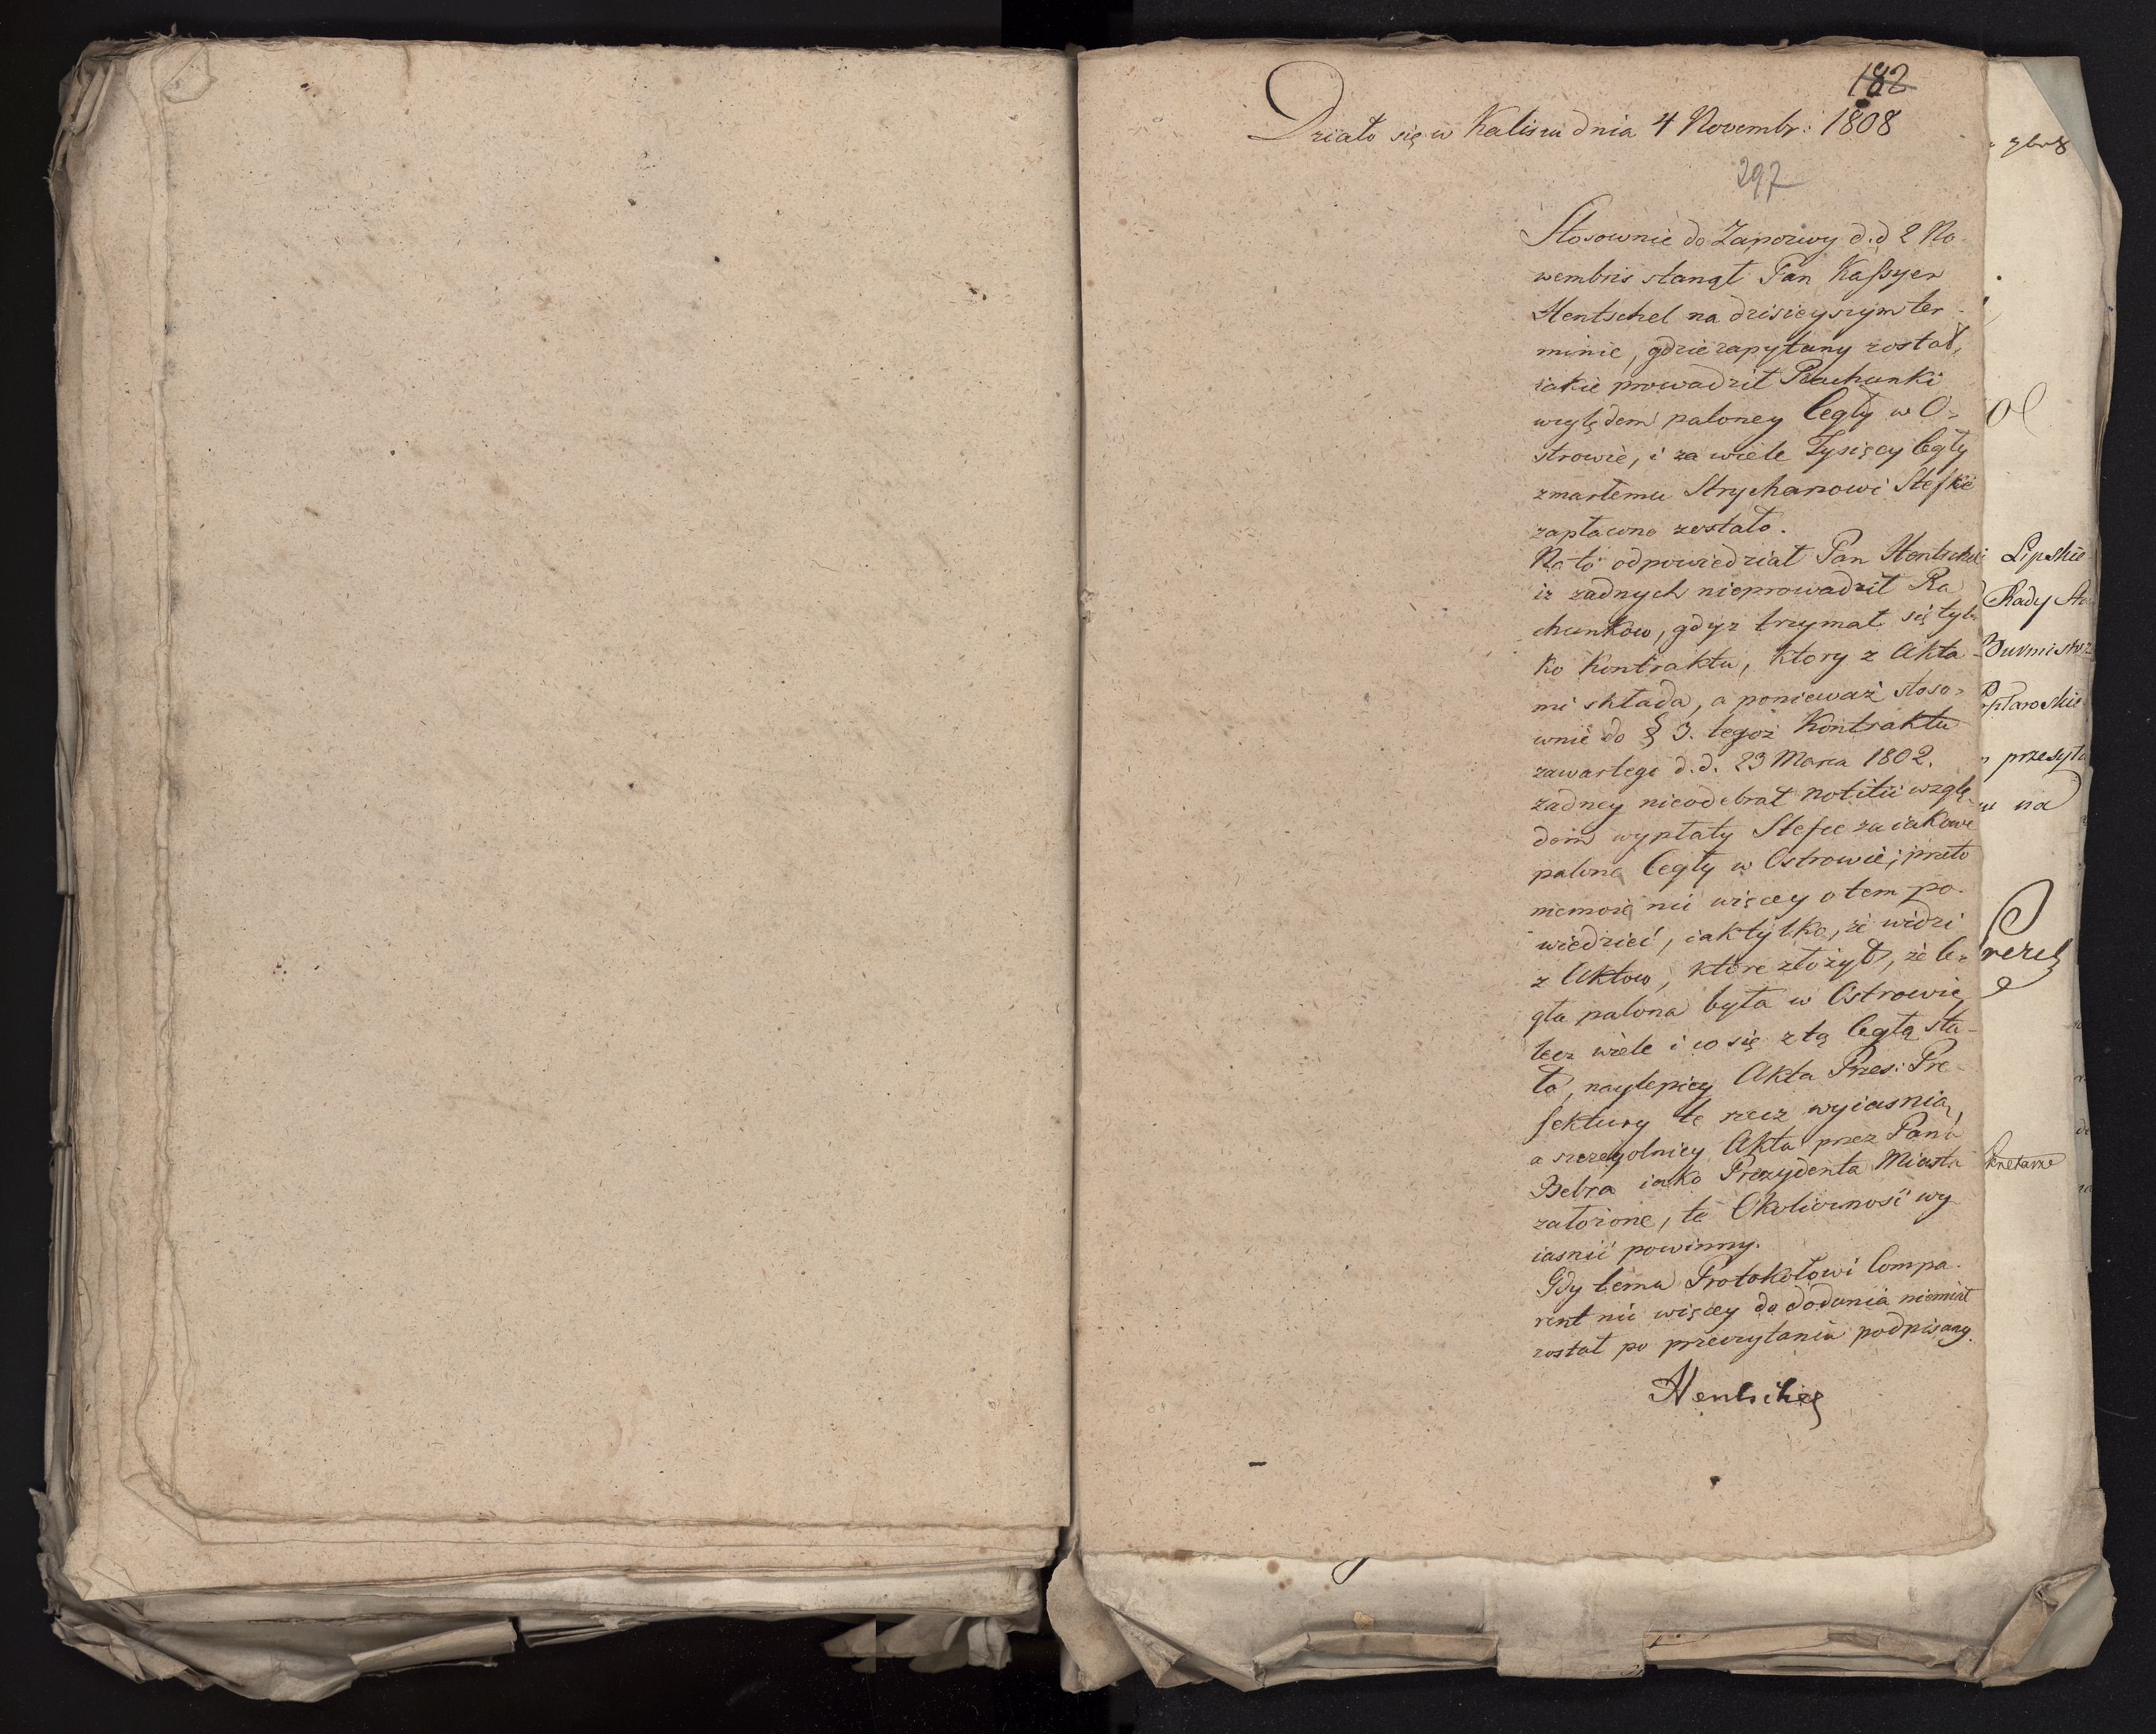 182
Działo się w Kaliszu dnia 4 Novembr: 1808
297
Stosownie do Zapozwy d.d 2 No-
wembris stanął Pan Kaſsyer
Hentschel na dzisieyszym ter-
minie, gdzie zapytany został,
iakie prowadził Rachunki
względem paloney Cegły w O-
strowie, i za wiele Tysięcy Cegły
zmarłemu Strycharzowi Stefke
zapłacono zostało.
Na to odpowiedział Pan Hentschel
iz zadnych nieprowadził Ra
chunkow, gdyz trzymał się tyl-
ko Kontraktu, ktory z Akta-
mi składa, a ponieważ stoso-
wnie do § 3. tegoż Kontraktu
zawartego d.d. 23 Marca 1802.
zadney nieodebrał notitii wzglę-
dem wypłaty Stefce za iakowe
palone Cegły w Ostrowie; przeto
niemoże nic więcey o tem po-
wiedzieć, iak tylko, że widzi
z Aktow, które złożył, że Ce-
gła palona była w Ostrowie
lecz wiele i co się z tą Cegłą sta-
ło, naylepiey Akta Przes: Pre-
fektury tę rzecz wyiasnią,
a szczegolniey Akta przez Pana
Bebra iako Prezydenta Miasta
założone, te Okoliczność wy-
iasnić powinny.
Gdy temu Protokołowi Compa-
rent nic więcey do dodania niemiał
został po przeczytaniu podpisany.
Hentschel
Lipskie
Rady
Burmistrz
przesyła
na